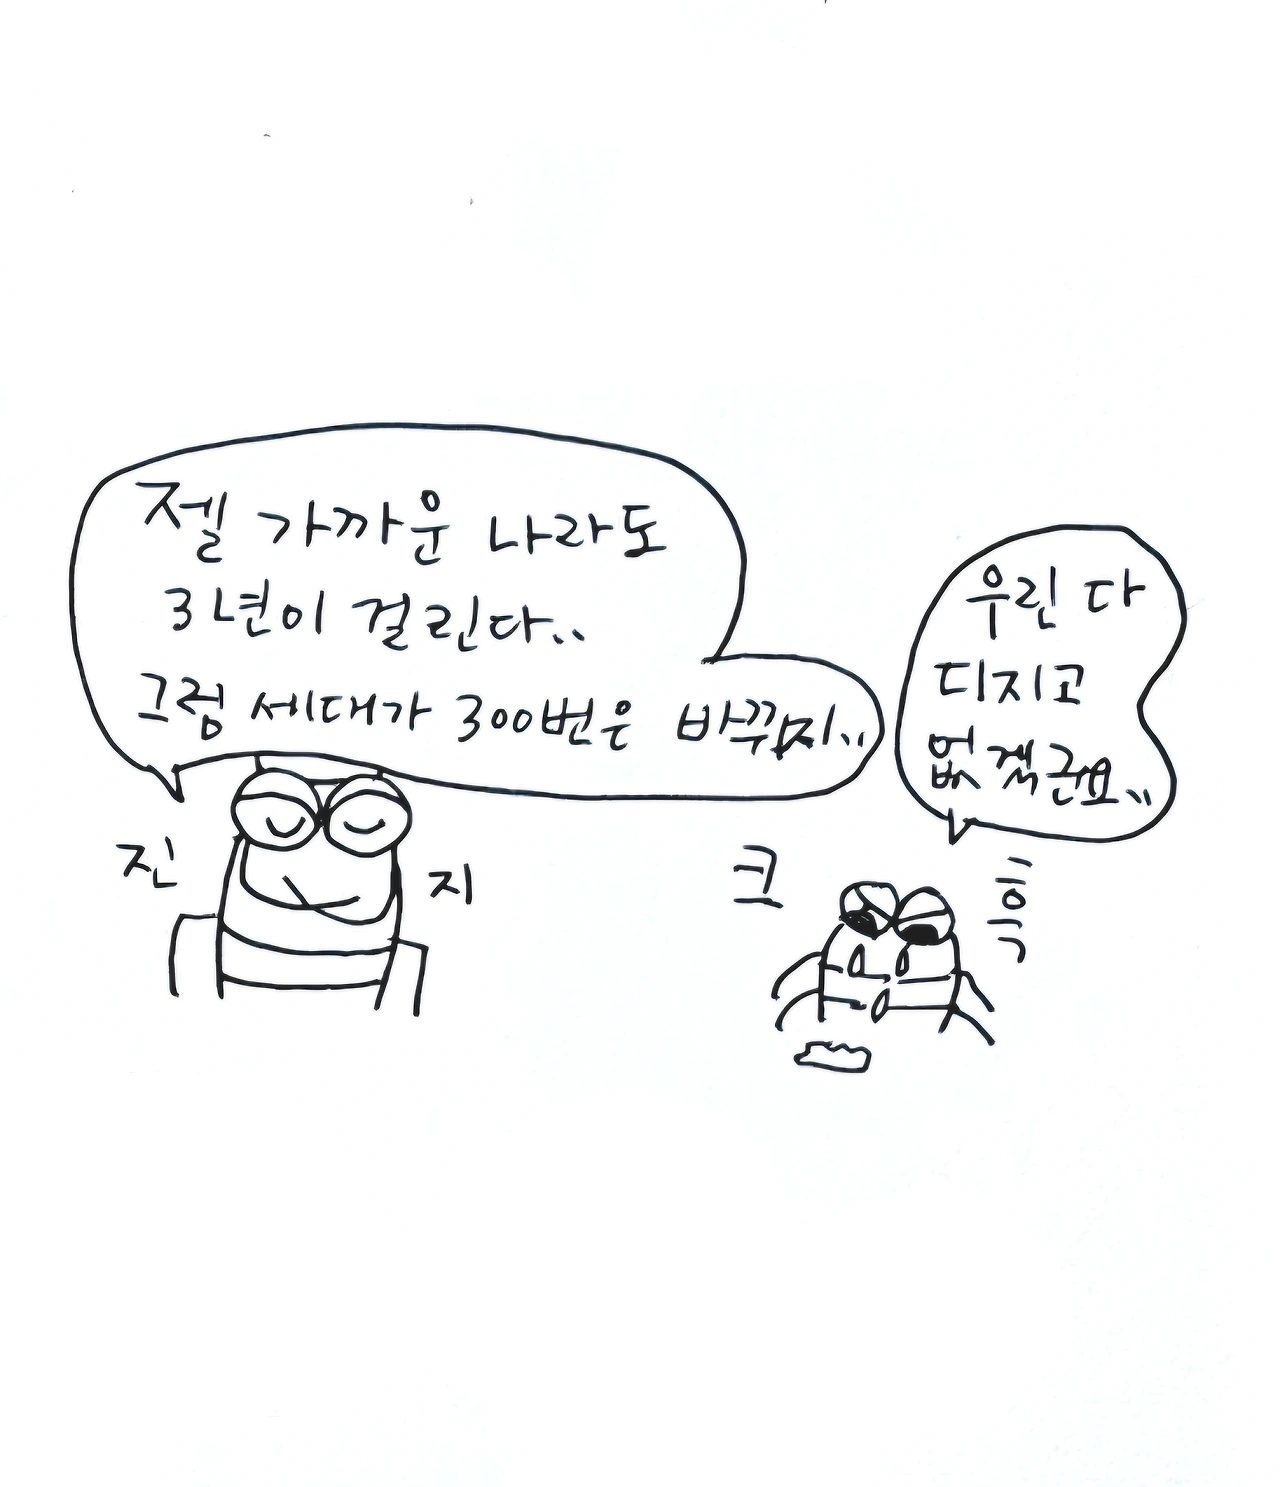 젤 가까운 나라도
3년이 걸린다..
그럼 세대가 300번은 바뀌지..
우린 다
디지고
없겠군요..
진
지
크
흐
ㄱ